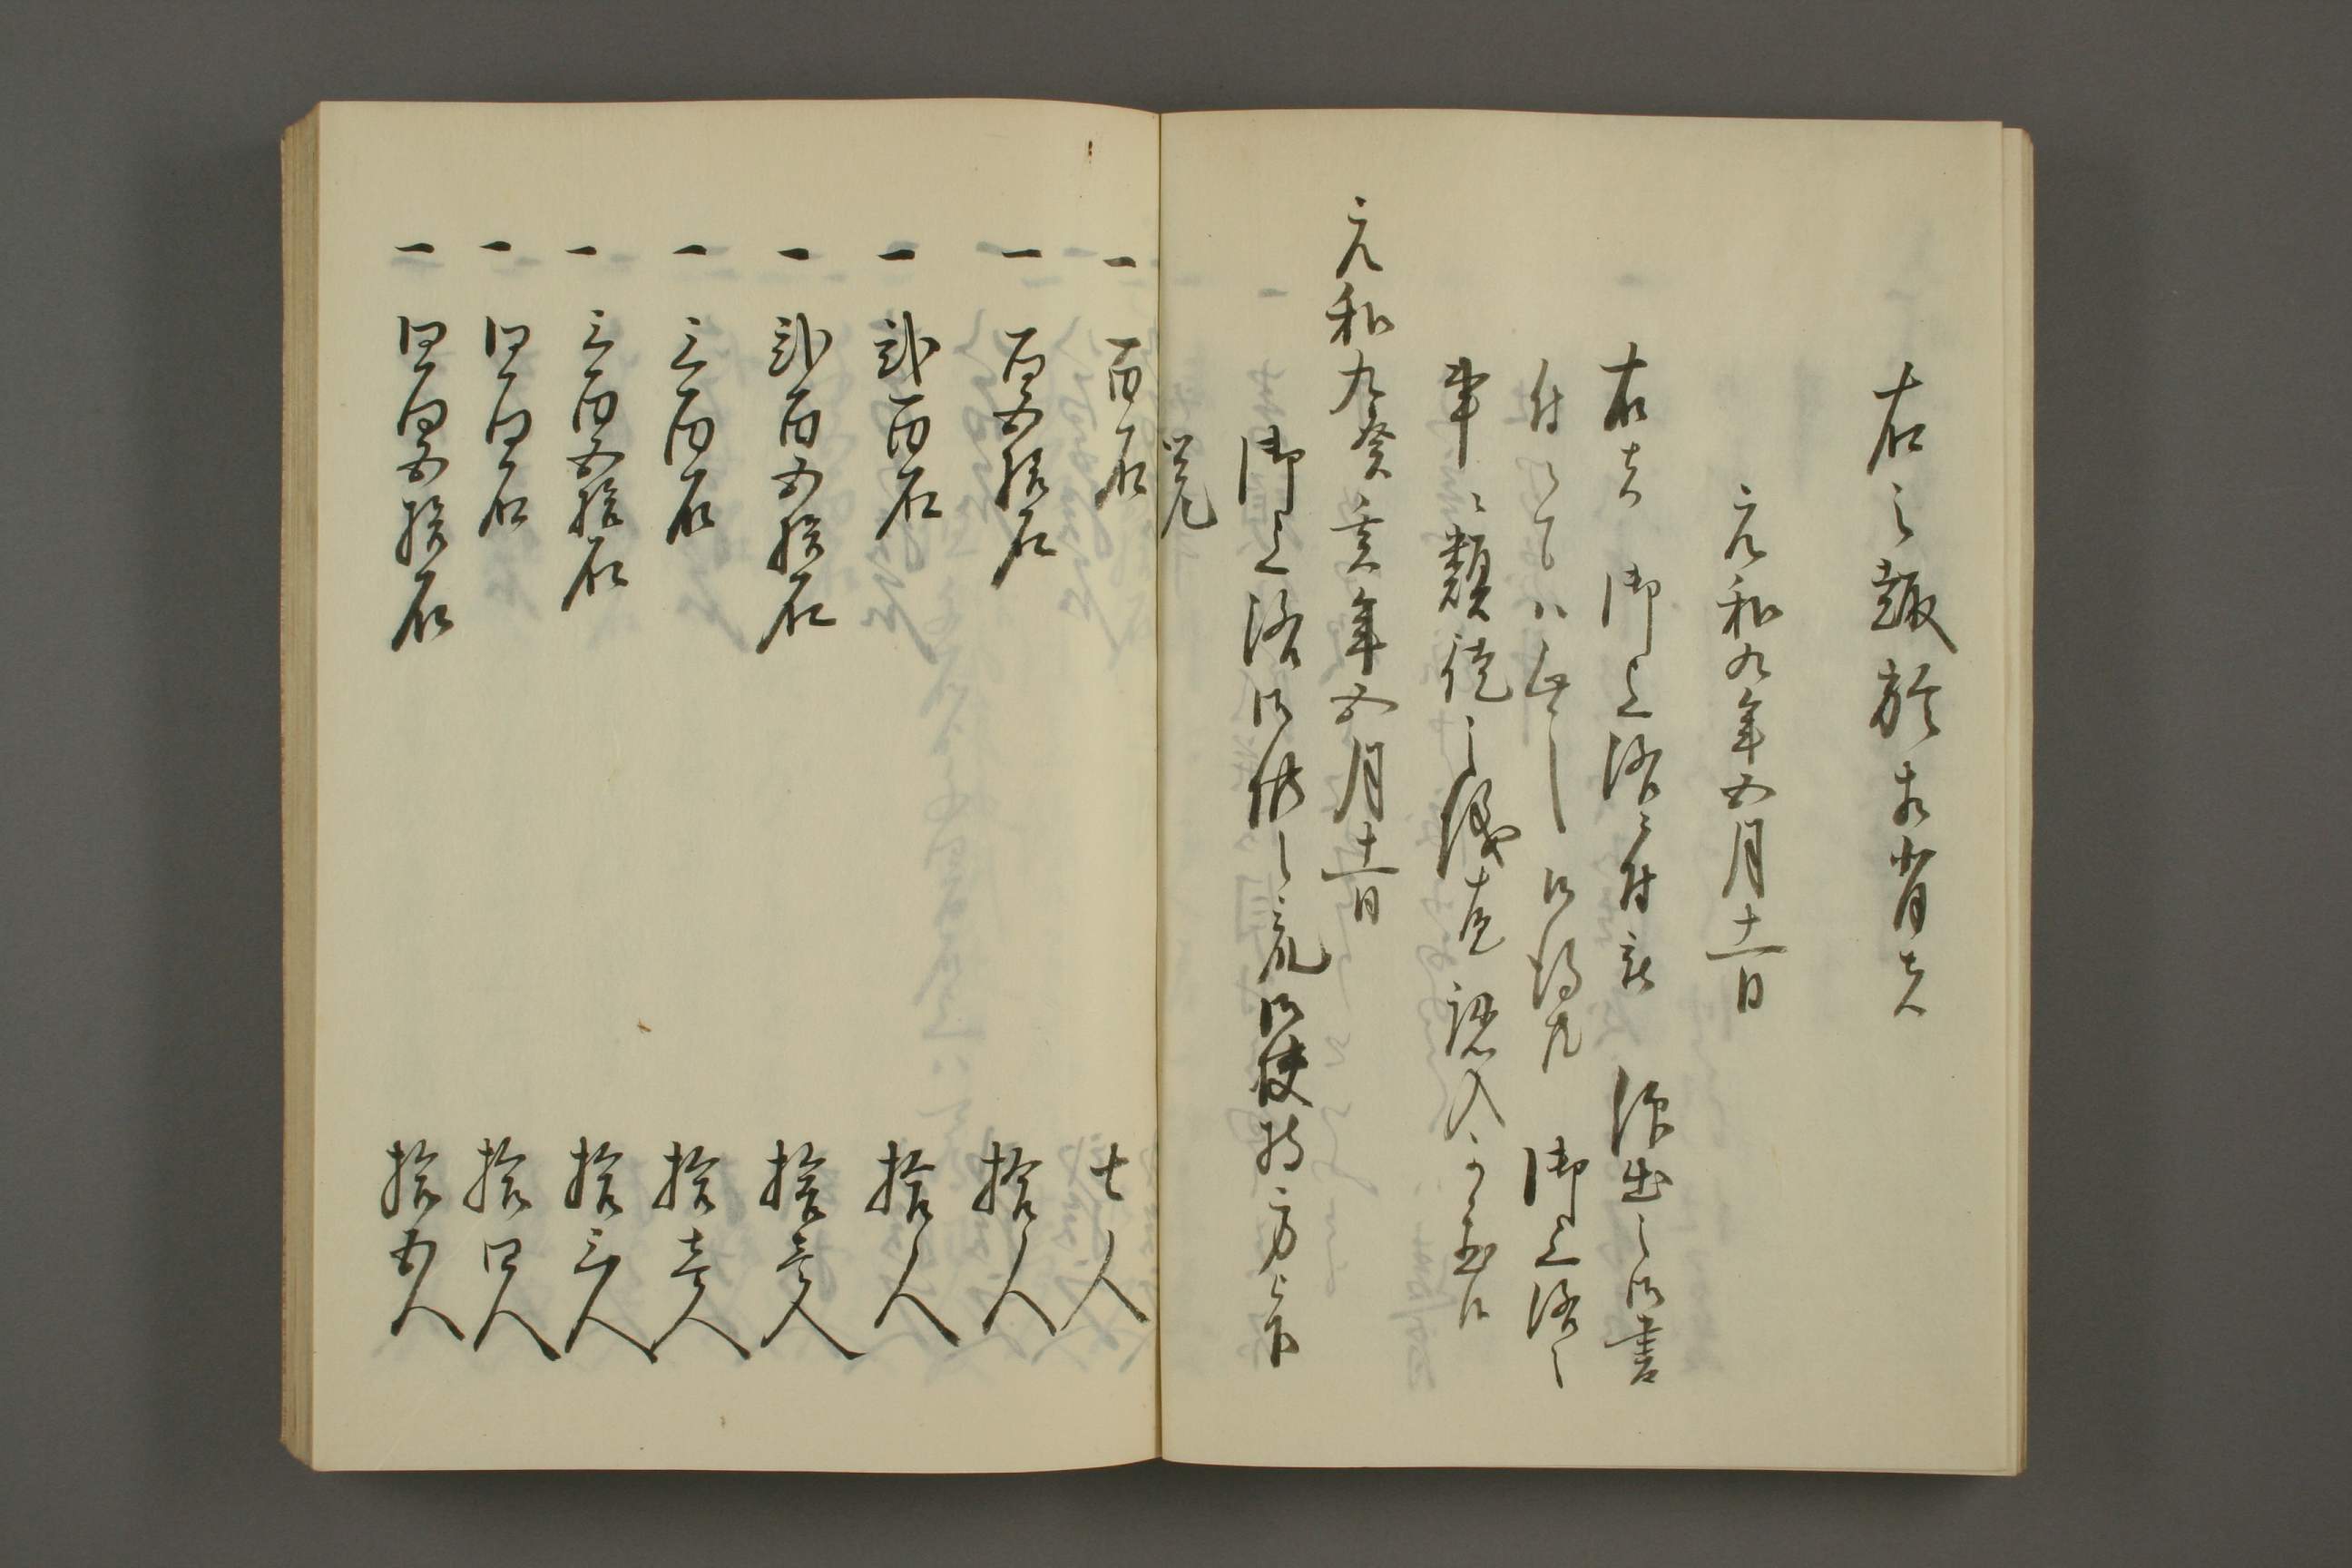 右之趣於相背者
元和九年五月十一日
右者　御上洛ニ付被　仰出之御書
付ニて候ハ無之御得共　御上洛之
事ニ類徒之儀故認入ニ至候
元和九癸亥年五月十一日
一　御上洛御供之衆御扶持方之
覚
一　百石　七人
一　百五拾石　拾人
一　弐百石　拾人
一　弐百五拾石　拾壱人
一　三百石　拾壱人
一　三百五拾石　拾三人
一　四百石　拾四人
一　四百五拾石　拾五人